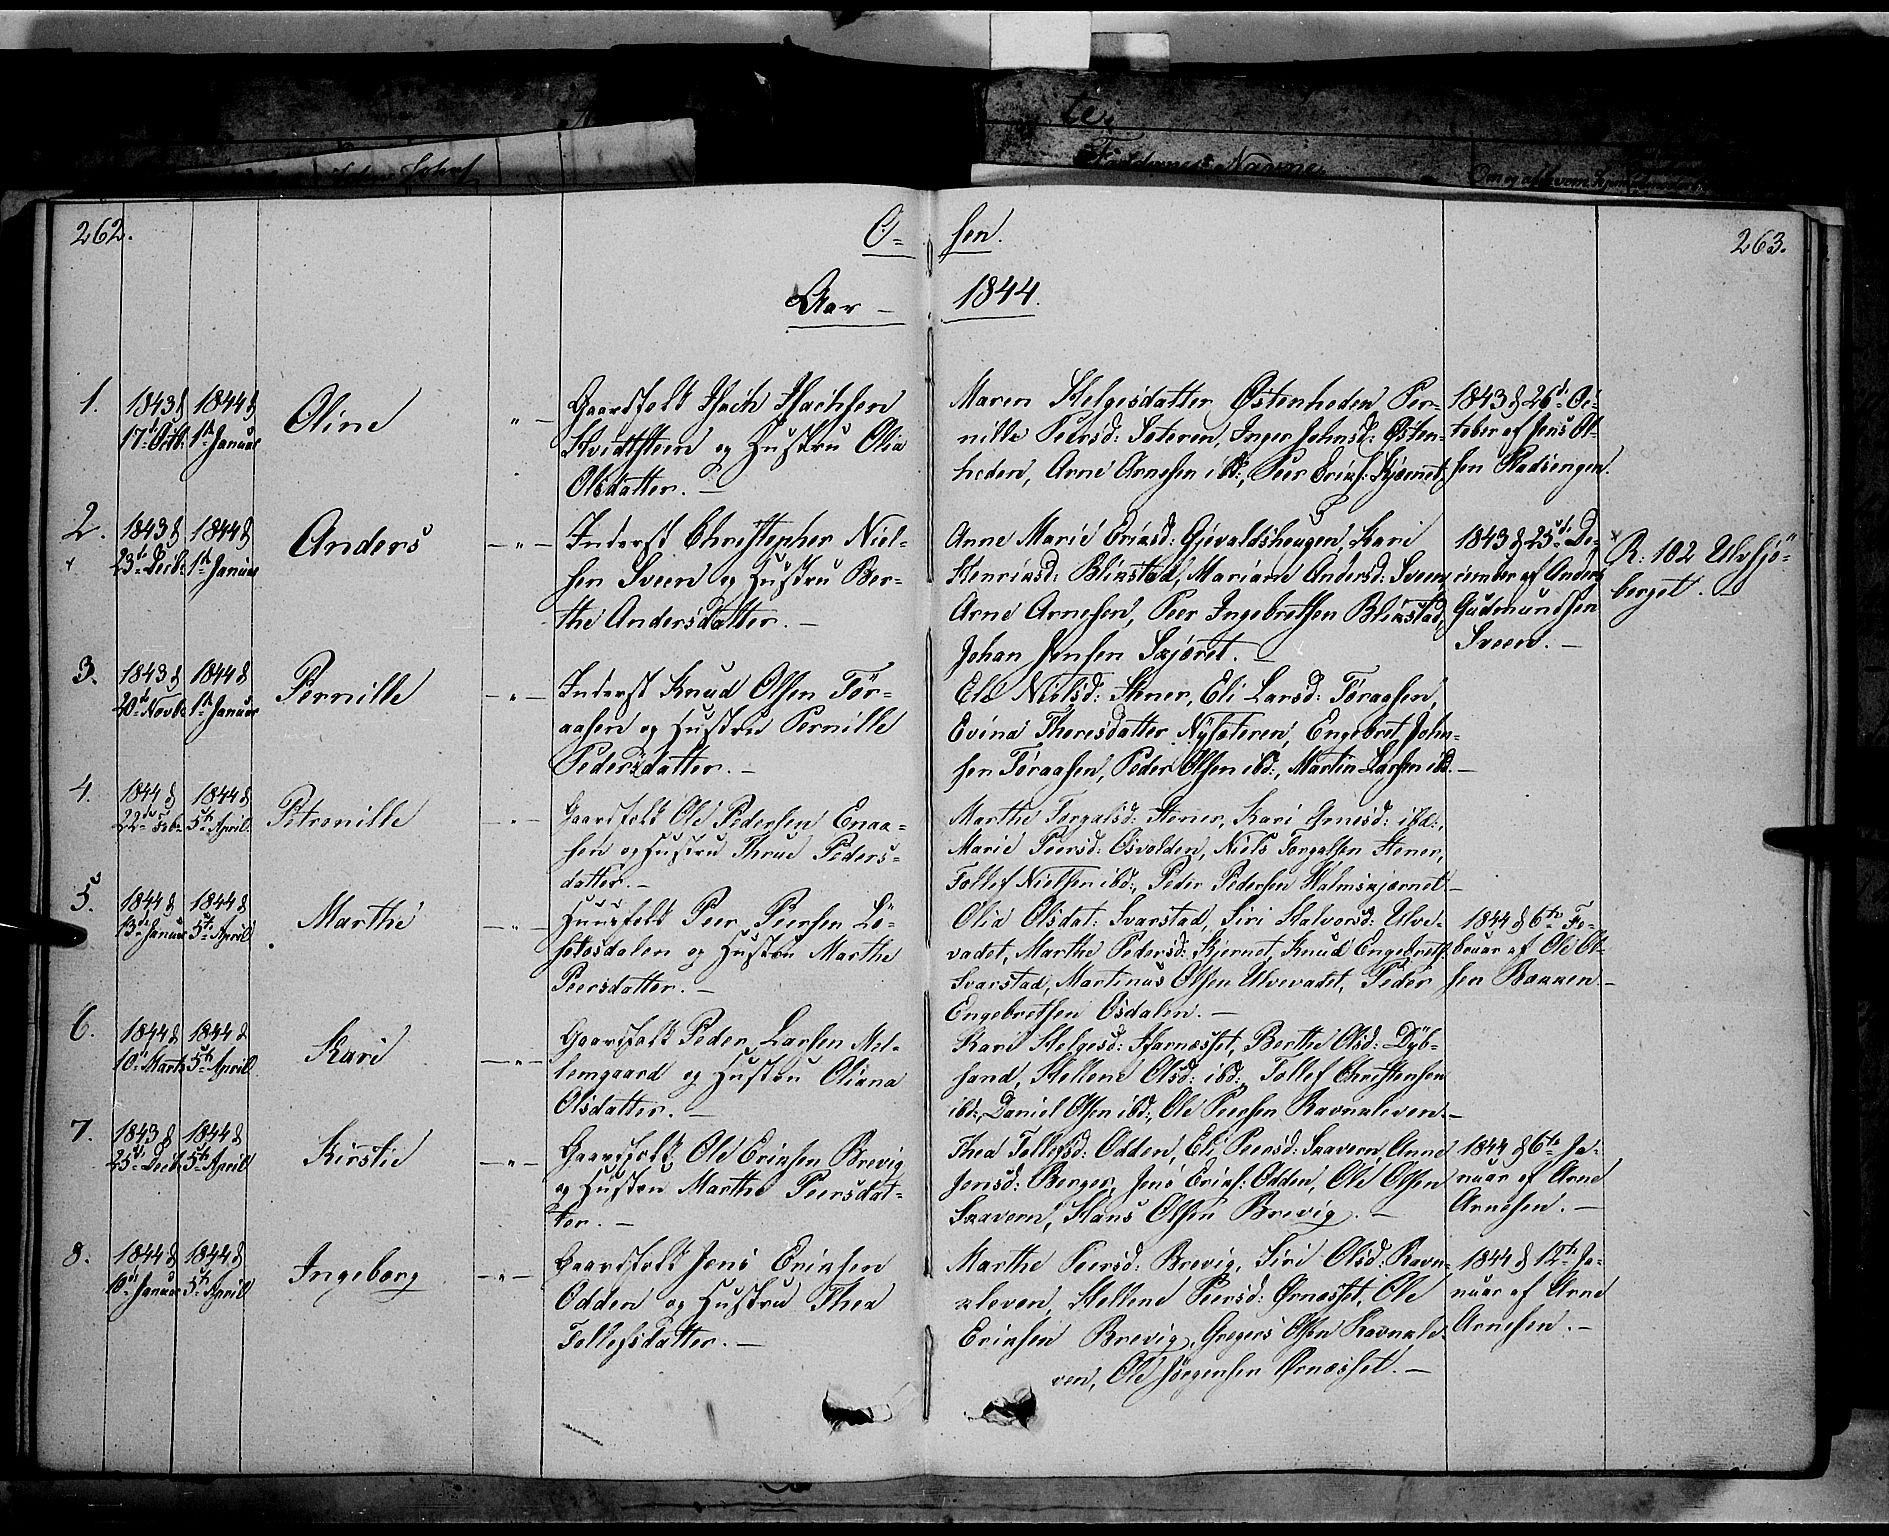 262.
O-
sen.
263.
Aar - 1844.
1.
1843 d 17de Octb:
1844 d 1ste Januar
Oline
- " -
Gaardfolk Isach Isachsen
Kvidtsteen og Hustru Olea
Olsdatter. -
Maren Helgesdatter Østenheden Per-
nille Peersd: Seteren, Inger Johnsd: Østen-
heden, Arne Arnesen ibd:, Peer Erics: Kjernet,
1843 d 26de Oc-
tober af Jens Ol-
sen Stadsengen.
2.
1843 d 23de Decb:
1844 d 1ste Januar
Anders
- " -
Inderst Christopher Niel-
sen Sveen og Hustru Ber-
the Andersdatter. -
Anne Marie Ericsd: Gjevaldshougen, Kari
Henricsd: Blixstad, Mariane Andersd: Sveen,
Arne Arnesen, Peer Ingebretsen Blixstad,
Johan Jensen Skjæret. -
1843 d 25de De-
cember af Anders
Gudmundsen
Sveen. -
R: 102 Ulvsjö-
berget.
3.
1843 d 20de Novb:
1844 d 1ste Januar
Pernille
- " -
Inderst Knud Olsen För-
aasen og Hustru Pernille
Pedersdatter. -
Ele Nielsd: Stener, Eli Larsd: Føraasen,
Evina Theresdatter Nysæteren, Engebret John-
sen Føraasen, Peder Olsen ibd:, Martin Larsen ibd. -
4.
1844 d 22de Feb:
1844 d 5te April
Petronille
- " -
Gaardfolk Ole Pedersen Enaa-
sen og Hustru Thrue Peders-
datter. -
Marthe Torgalsd: Stener, Kari ibd:,
Marie Peersd: Osvolden, Niels Torgalsen Stener,
Tollef Nielsen ibd:, Peder Pedersen Halmskjærnet -
5.
1844 d 13de Januar
1844 d 5te April
Marthe
- " -
Huusfolk Peer Peersen Lö-
setosdalen og Hustru Marthe
Peersdatter. -
Olea Olsdat: Svarstad, Siri Halvorsd: Ulve-
vadet, Marthe Pedersd: Kjernet, Knud Engebrets:
Svarstad, Martinus Olsen Ulvevadet, Peder
Engebretsen Osdalen. -
1844 d 6te Fe-
bruar af Ole Ol-
sen Bakken. -
6.
1844 d 10de Marts
1844 d 5te April
Kari
- " -
Gaardfolk Peder Larsen Mel-
lemgaard og Hustru Oliana
Olsdatter. -
Kari Helgesd: Berthe Olsd: Dyb-
sand, Hellene Olsd: ibd:, Tollef Christensen
ibd:, Daniel Olsen ibd:, Ole Peersen Ravnkleven. -
7.
1843 d 25de Decb:
1844 d 5te April
Kirstie
- " -
Gaardfolk Ole Ericsen Brevig
og Hustru Marthe Peersdat-
ter. -
Thea Tollefsd: Odden, Eli Peersd: Skavern, Anne
Jensd: Berger, Jens Erics: Odden, Ole Olsen
Skavern, Hans Olsen Brevig. -
1844 d 6te Ja-
nuar af Arne
Arnesen. -
8.
1844 d 10de Januar
1844 d 5te April
Ingeborg
- " -
Gaardfolk Jens Ericsen
Odden og Hustru Thea
Tollefsdatter. -
Marthe Peersd: Brevig, Siri Olsd: Ravn-
kleven, Hellene Peersd: Ørnæsset, Ole
Ericsen Brevig, Gregers Olsen Ravnkle-
ven, Ole Jørgensen Ørnæsset. -
1844 d 12te Ja-
nuar af Arne
Arnesen. -